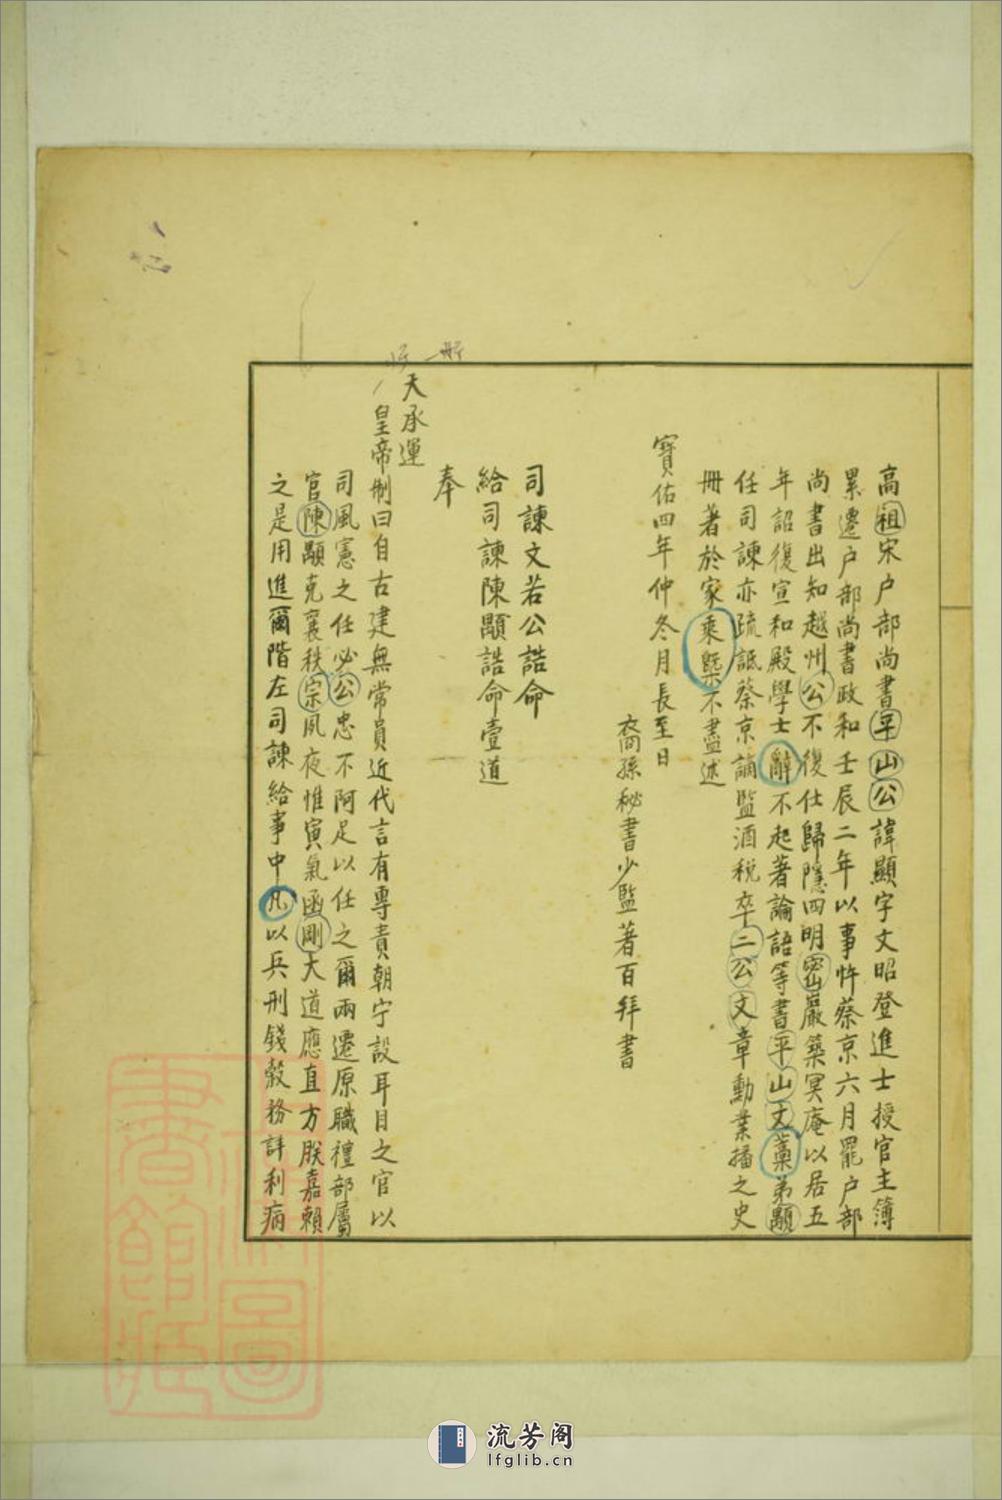 高祖宋户部尚書平山公諱顯字文昭登進士授官主簿
累遷户部尚書政和壬辰二年以事忤蔡京六月罷户部
尚書出知越州公不復仕歸隱四明密巖築冥庵以居五
年詔復宣和殿學士辭不起著論語等書平山文藁弟顒
任司諫亦疏詆蔡京謫監酒税卒二公文章勳業播之史
冊著於家乘槩不盡述
寶佑四年仲冬月長至日
裔孫秘書少監著百拜書
司諫文若公誥命
給司諫陳顒誥命壹道
奉
天承運
皇帝制曰自古建無常員近代言有專責朝宁設耳目之官以
司風憲之任必公忠不阿足以任之爾兩遷原職禮部屬
官陳顒克襄秩宗夙夜惟寅氣函剛大道應直方朕嘉賴
之是用進爾階左司諫給事中凡以兵刑錢穀務詳利病
流芳阁
lfglib.cn